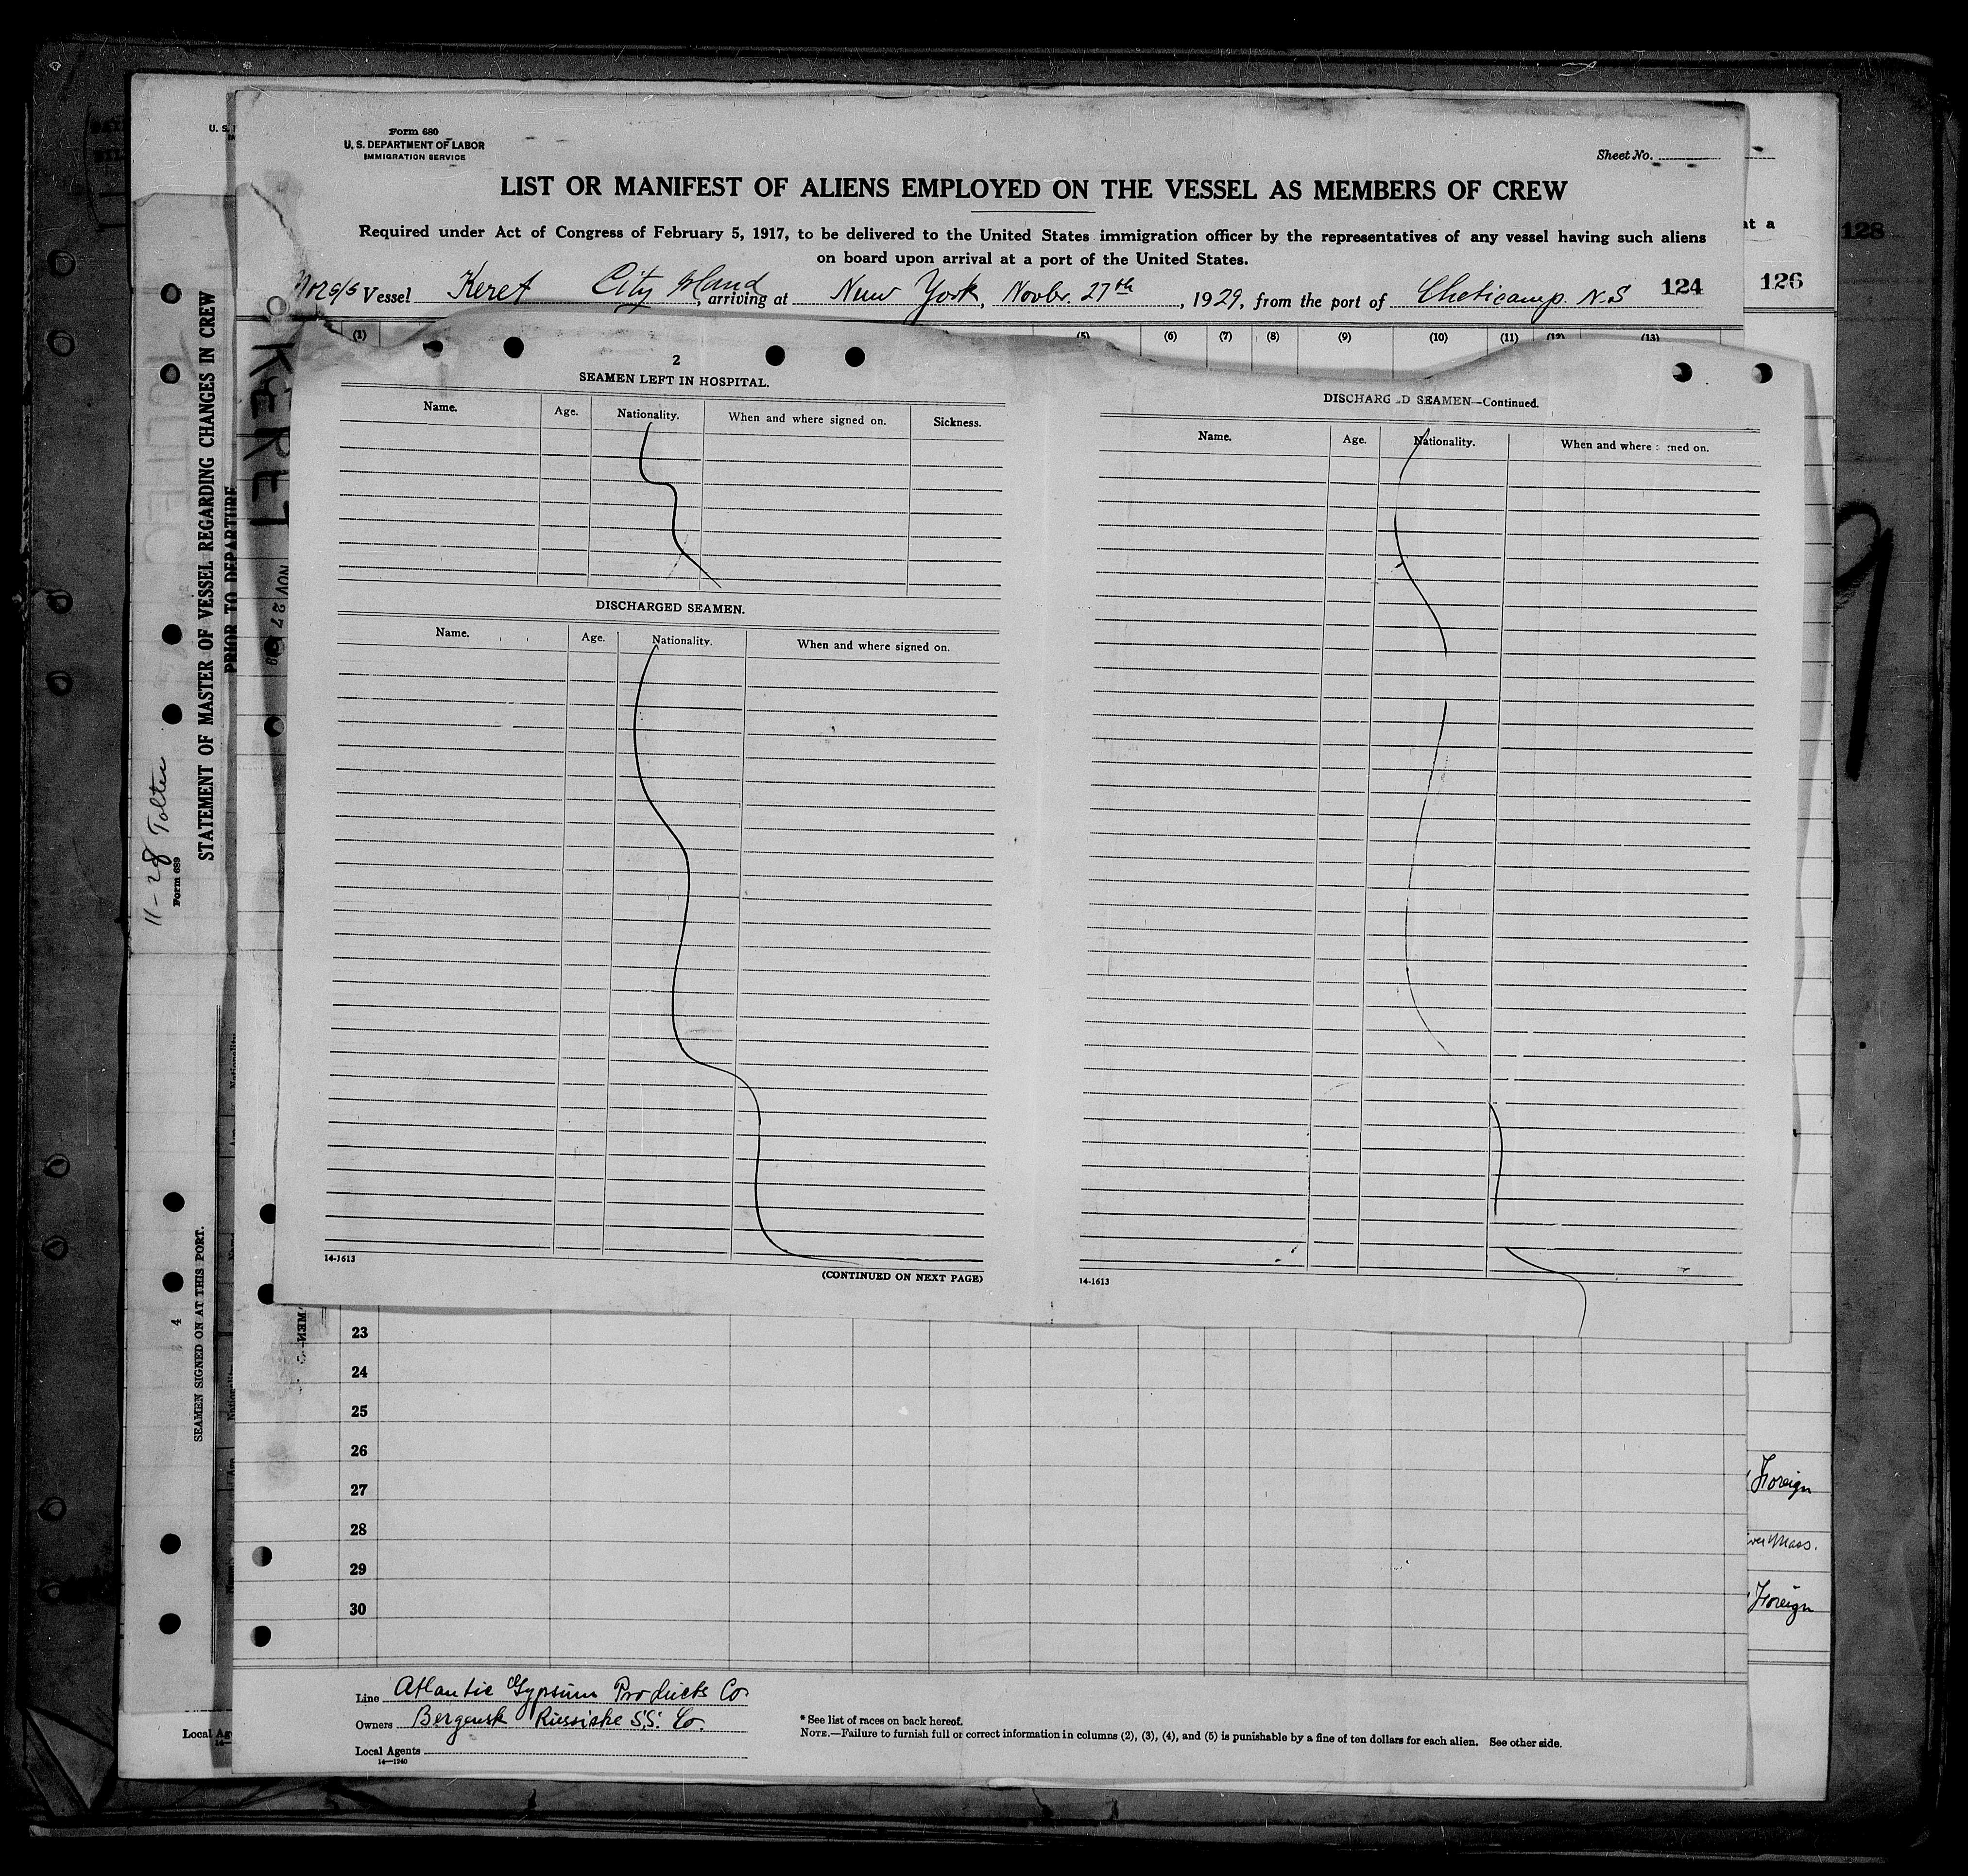 Form 680
U. S. DEPARTMENT OF LABOR
IMMIGRATION SERVICE
Sheet No.
LIST OR MANIFEST OF ALIENS EMPLOYED ON THE VESSEL AS MEMBERS OF CREW
Required under Act of Congress of February 5, 1917, to be delivered to the United States immigration officer by the representatives of any vessel having such aliens
on board upon arrival at a port of the United States.
Nor s/s Vessel Keret City Island, arriving at New York, Novbr. 27th, 1929, from the port of Cheticamp. N.S 124
126
128
at a
(1) (5) (6) (7) (8) (9) (10) (11) (12) (13)
2
SEAMEN LEFT IN HOSPITAL.
Name. Age. Nationality. When and where signed on. Sickness.
DISCHARGED SEAMEN.
Name. Age. Nationality. When and where signed on.
14-1613
(CONTINUED ON NEXT PAGE)
DISCHARG D SEAMEN—Continued.
Name. Age. Nationality. When and where ned on.
14-1613
KERET
NOV 27
STATEMENT OF MASTER OF VESSEL REGARDING CHANGES IN CREW
PRIOR TO DEPARTURE
11-28 Tolten
Form 689
4
SEAMEN SIGNED ON AT THIS PORT.
23
24
25
26
27
28
29
30
Foreign
Mass.
Foreign
Line Atlantic Gypsum Products Co.
Owners Bergensk Russiske S.S. Co.
Local Agents
14—1240
* See list of races on back hereof.
NOTE.—Failure to furnish full or correct information in columns (2), (3), (4), and (5) is punishable by a fine of ten dollars for each alien. See other side.
Local Ag